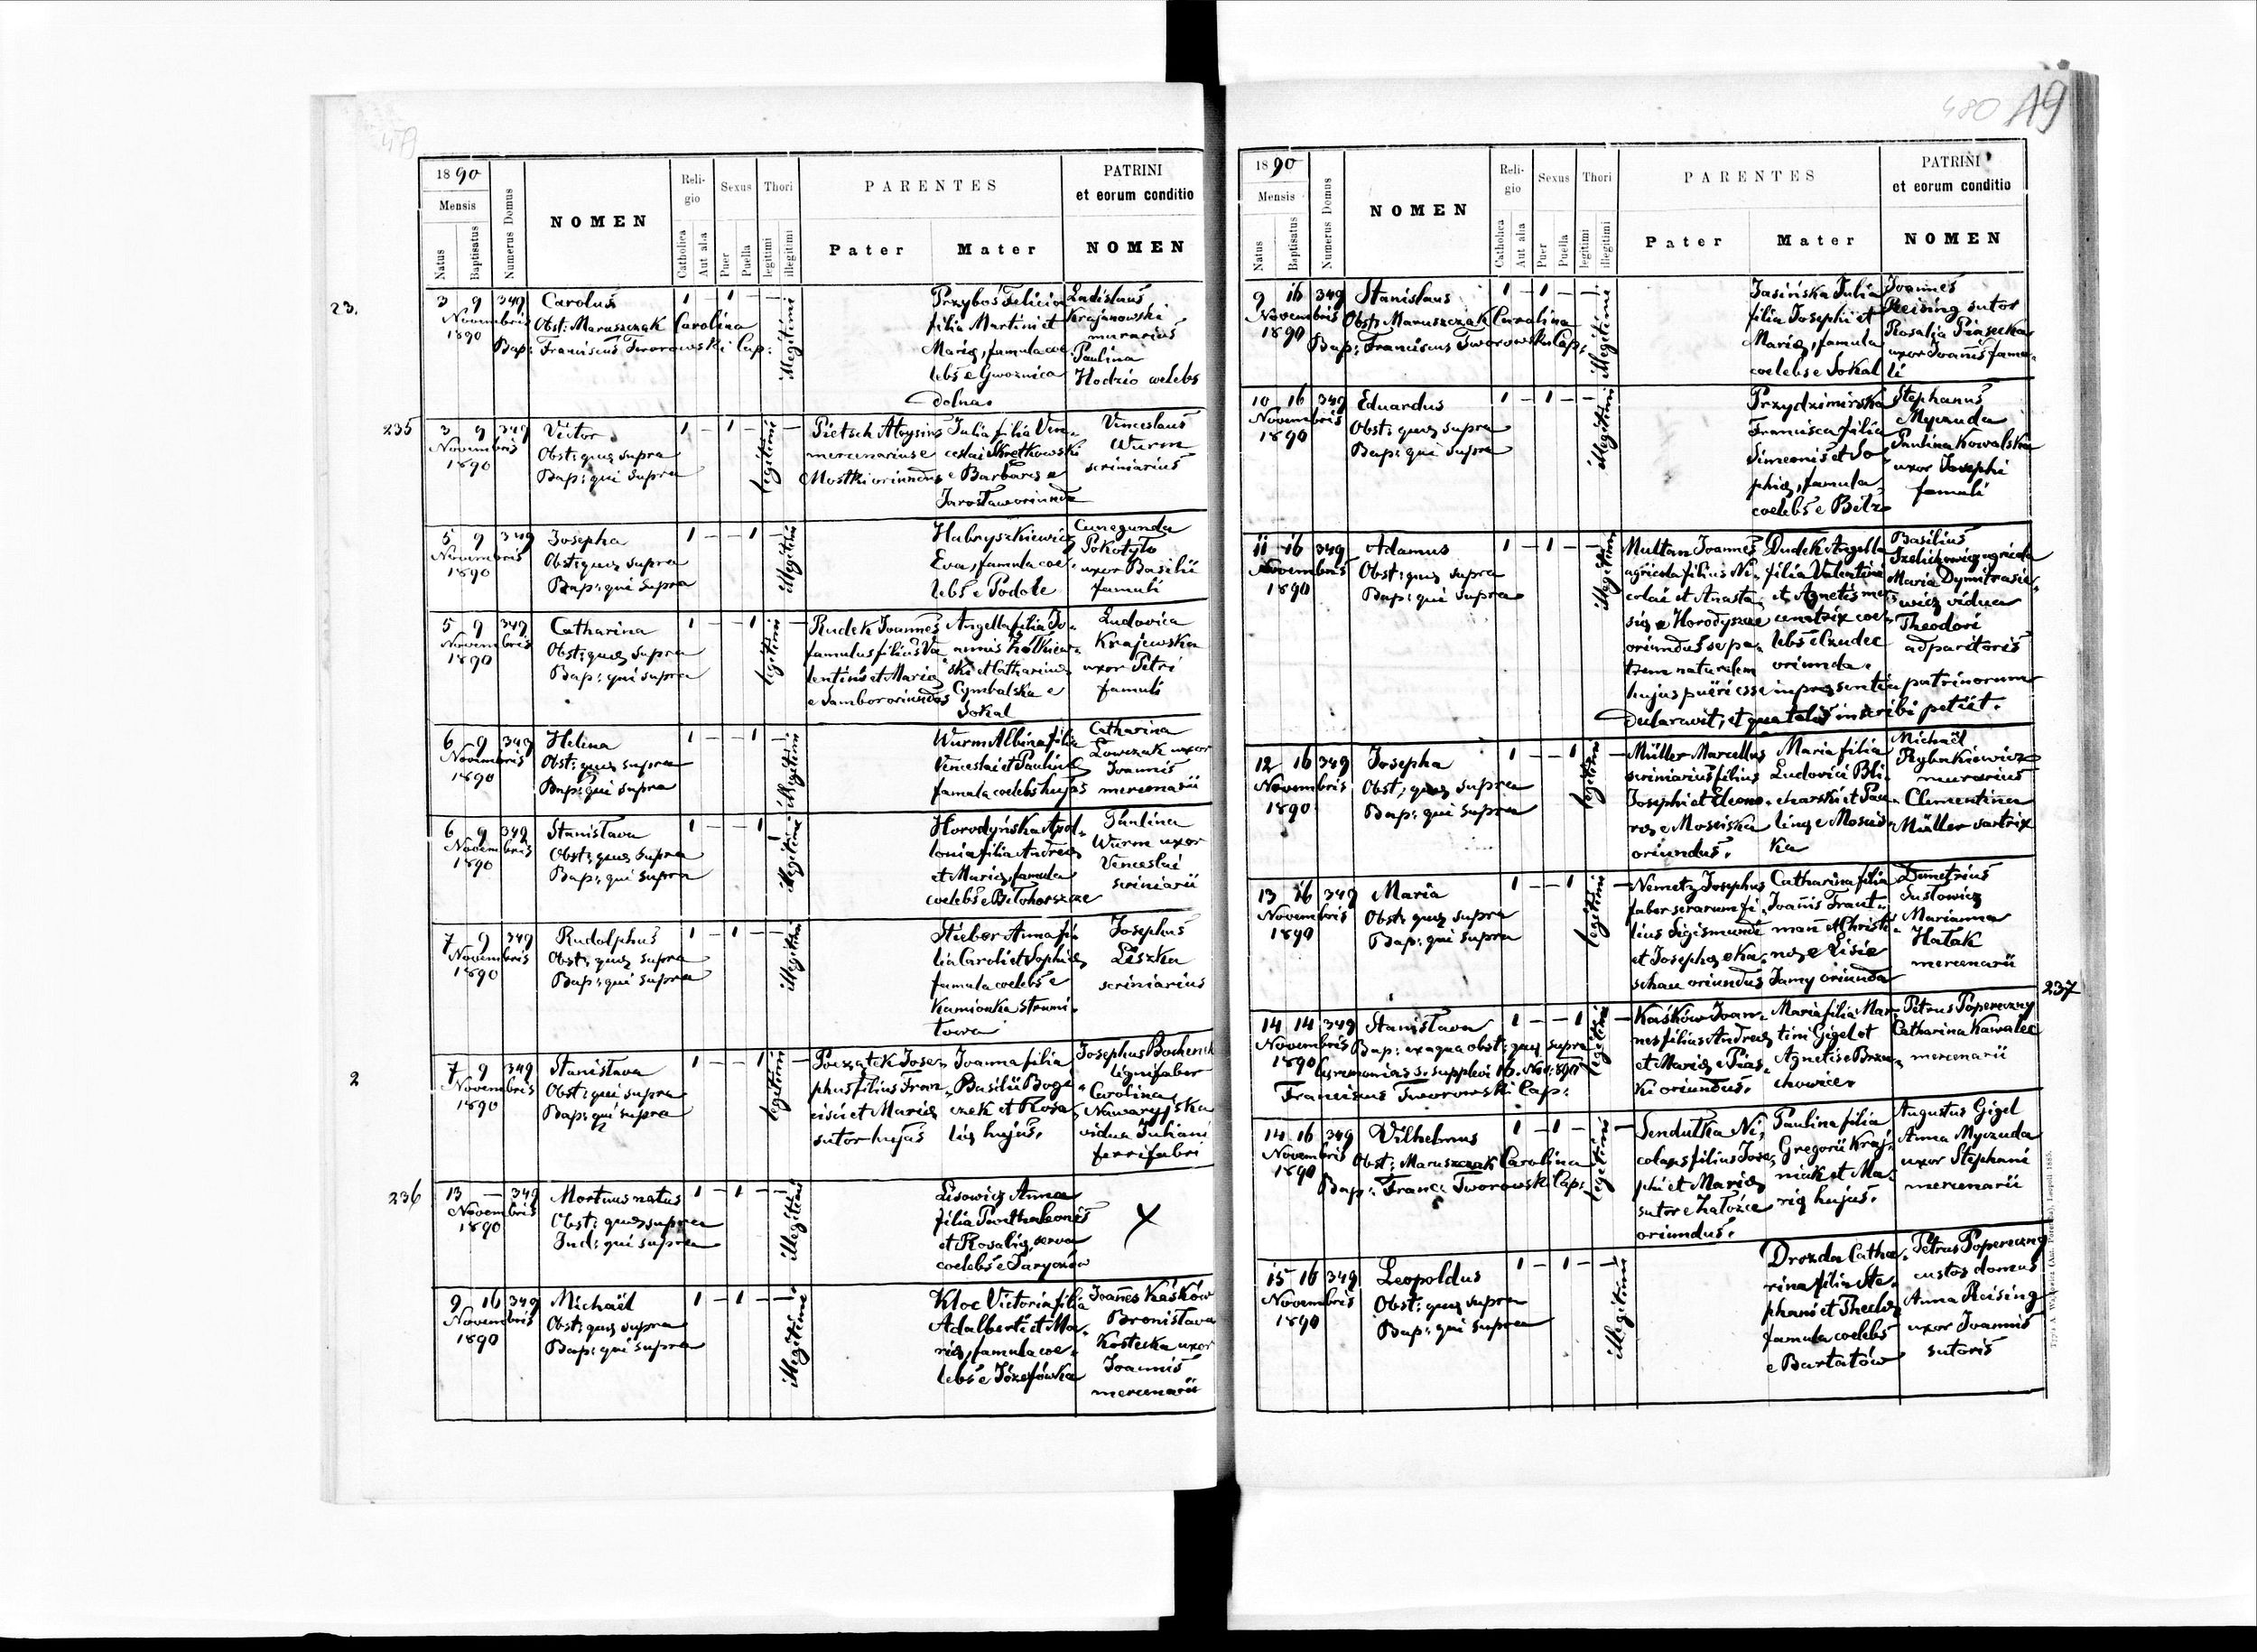 479
1890
Mensis
Natus
Baptisatus
Numerus Domus
NOMEN
Reli-
gio
Catholica
Aut alia
Sexus
Puer
Puella
Thori
legitimi
illegitimi
PARENTES
Pater
Mater
PATRINI
et eorum conditio
NOMEN
23.
3 9 349
Novembris
1890
Carolus
Obst: Maruszczak Carolina
Bap: Franciscus Tworowski Cap:
1 – 1 – –
illegitimi
Przyboś Felicia
filia Martini et
Marię, famula coe-
lebs e Gwoźnica
dolna.
Ladislaus
Krajanowski
murarius
Paulina
Hodzio coelebs
235
3 9 349
Novembris
1890
Victor
Obst: quę supra
Bap: qui supra
1 – 1 – –
legitimi
Pietsch Aloysius
mercenarius e
Mostki oriundus
Julia filia Ven-
ceslai Skretkowski
e Barbarę e
Jarosław oriunda
Venceslaus
Wurm
scriniarius
5 9 349
Novembris
1890
Josepha
Obst: quę supra
Bap: qui supra
1 – – 1 –
illegitimi
Habryszkiewicz
Eva, famula coe-
lebs e Podole
Cunegunda
Pokotyło
uxor Basilii
famuli
5 9 349
Novembris
1890
Catharina
Obst: quę supra
Bap: qui supra
1 – – 1 –
legitimi
Rudek Joannes
famulus filius Va
lentini et Marię
e Sambor oriundus
Angella filia Jo-
annis Żółkiew-
ski et Catharinę
Cymbalska e
Sokal
Ludovica
Krajewska
uxor Petri
famuli
6 9 349
Novembris
1890
Helena
Obst: quę supra
Bap: qui supra
1 – – 1 –
illegitimi
Wurm Albina filia
Venceslai et Paulinę
famula coelebs hujas
Catharina
Łowczak uxor
Joannis
mercenarii
6 9 349
Novembris
1890
Stanisława
Obst: quę supra
Bap: qui supra
1 – – 1 –
illegitimi
Horodyńska Apol-
lonia filia Andreę
et Marię, famula
coelebs e Biłohorszcze
Paulina
Wurm uxor
Venceslai
scriniarii
7 9 349
Novembris
1890
Rudolphus
Obst: quę supra
Bap: qui supra
1 – 1 – –
illegitimi
Stieber Anna fi-
lia Caroli et Sophię
famula coelebs e
Kamionka strumi-
łowa
Josephus
Liszka
scriniarius
2
7 9 349
Novembris
1890
Stanisława
Obst: qui supra
Bap: qui supra
1 – – 1 –
legitimi
Początek Jose-
phus filius Fran-
cisci et Marię
sutor hujas
Joanna filia
Basilii Bogd
czek et Rosa-
lię hujas.
Josephus Bochenik
lignifaber
Carolina
Nawaryjska
vidua Juliani
ferrifabri
236
13 – 349
Novembris
1890
Mortuus natus
Obst: quę supra
Ind: qui supra
1 – 1 – –
illegitimi
Lisowicz Anna
filia Panthaleonis
et Rosalię, serva
coelebs e Jaryczów
X
9 16 349
Novembris
1890
Michaël
Obst: quę supra
Bap: qui supra
1 – 1 – –
illegitimi
Kloc Victoria filia
Adalberti et Ma-
rię, famula coe-
lebs e Józefówka
Joannes Kaśków
Bronisława
Kostecka uxor
Joannis
mercenarii
480
119
1890
Mensis
Natus
Baptisatus
Numerus Domus
NOMEN
Reli-
gio
Catholica
Aut alia
Sexus
Puer
Puella
Thori
legitimi
illegitimi
PARENTES
Pater
Mater
PATRINI
et eorum conditio
NOMEN
9 16 349
Novembris
1890
Stanislaus
Obst: Maruszczak Carolina
Bap: Franciscus Tworowski Cap:
1 – 1 – –
illegitimi
Jasińska Julia
filia Josephi et
Marię, famula
coelebs e Sokal
Joannes
Reising sutor
Rosalia Piasecka
uxor Joañis famu-
li
10 16 349
Novembris
1890
Eduardus
Obst: quę supra
Bap: qui supra
1 – 1 – –
illegitimi
Przydzimirska
Francisca filia
Simeonis et So-
phię, famula
coelebs e Bełz
Stephanus
Myczuda
Paulina Kowalska
uxor Josephi
famuli
11 16 349
Novembris
1890
Adamus
Obst: quę supra
Bap: qui supra
1 – 1 – –
illegitimi
Multan Joannes
agricola filius Ni-
colai et Anasta-
się e Horodyszcze
oriundus se pa-
trem naturalem
hujus pueri esse in pręsentia patrinorum
declaravit, et qua talis inscribi petiit.
Dudek Angella
filia Valentini
et Agnetis mer-
cenatrix coe-
lebs e Czudec
oriunda.
Basilius
Szelichowicz agricola
Maria Dymitrasie-
wicz vidua
Theodori
adparitoris
12 16 349
Novembris
1890
Josepha
Obst: quę supra
Bap: qui supra
1 – – 1 –
legitimi
Müller Marcellus
scriniarius filius
Josephi et Eleono-
rę e Mosciska
oriundus.
Maria filia
Ludovici Bli-
charski et Pau-
linę e Moscis-
ka
Michaël
Rybakiewicz
murarius
Clementina
Müller sartrix
13 16 349
Novembris
1890
Maria
Obst: quę supra
Bap: qui supra
1 – – 1 –
legitimi
Nemetz Josephus
faber serarum fi-
lius Sigismundi
et Josephę e Ka-
schau oriundus
Catharina filia
Joañis Traut-
mañ et Christi-
nę e Lisie
Jamy oriunda
Demetrius
Susłowicz
Marianna
Hałak
mercenarii
237
14 14 349
Novembris
1890
Stanisława
Bap: ex aqua obst: quę supra
Ceremonias s. supplevi 16. Nov: 890
Franciscus Tworowski Cap:
1 – – 1 –
legitimi
Kaśków Joan-
nes filius Andreę
et Marię e Pias-
ki oriundus.
Maria filia Mar-
tini Gigel et
Agnetis e Brzu-
chowice
Petrus Popereczny
Catharina Kawalec
mercenarii
14 16 349
Novembris
1890
Vilhelmus
Obst: Maruszczak Carolina
Bap: Franc: Tworowski Cap:
1 – 1 – –
legitimi
Sendułka Ni-
colaus filius Jose-
phi et Marię
sutor e Załoźce
oriundus.
Paulina filia
Gregorii Kraj-
niak et Ma-
rię hujas.
Augustus Gigel
Anna Myczuda
uxor Stephani
mercenarii
15 16 349
Novembris
1890
Leopoldus
Obst: quę supra
Bap: qui supra
1 – 1 – –
illegitimi
Drozda Catha-
rina filia Ste-
phani et Theclę
famula coelebs
e Bartatów
Petrus Popereczny
custos domus
Anna Reising
uxor Joannis
sutoris